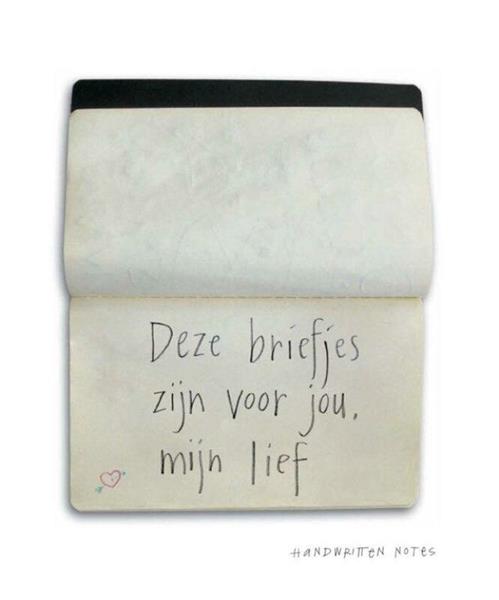 Deze briefjes
zijn voor jou,
mijn lief
HANDWRITTEN NOTES